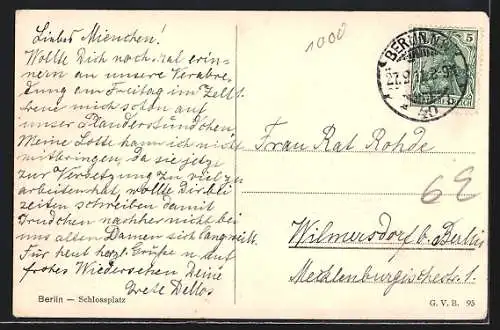 Liebes Mienchen!
Wollte Dich noch mal erin-
nern an unsere Verabre
dung am Freitag im Zelt 1.
freue mich schon auf
unser Plauderstündchen,
Meine Lotte kann ich nicht
mitbringen, da sie jetzt
zur Versetzung zu viel zu
arbeiten hat, wollte Dir bei
zeiten schreiben damit
Trudchen nachher nicht bei
uns alten Damen sich langweilt.
Für heut herzl. Grüße u. auf
frohes Wiedersehen Deine
Grete Dellos
Berlin — Schlossplatz
1000
5
BERLIN N.W.
40
Frau Rat Rohde
6E
Wilmersdorf b. Berlin
Mecklenburgischestr. 1.
G. V. B. 95